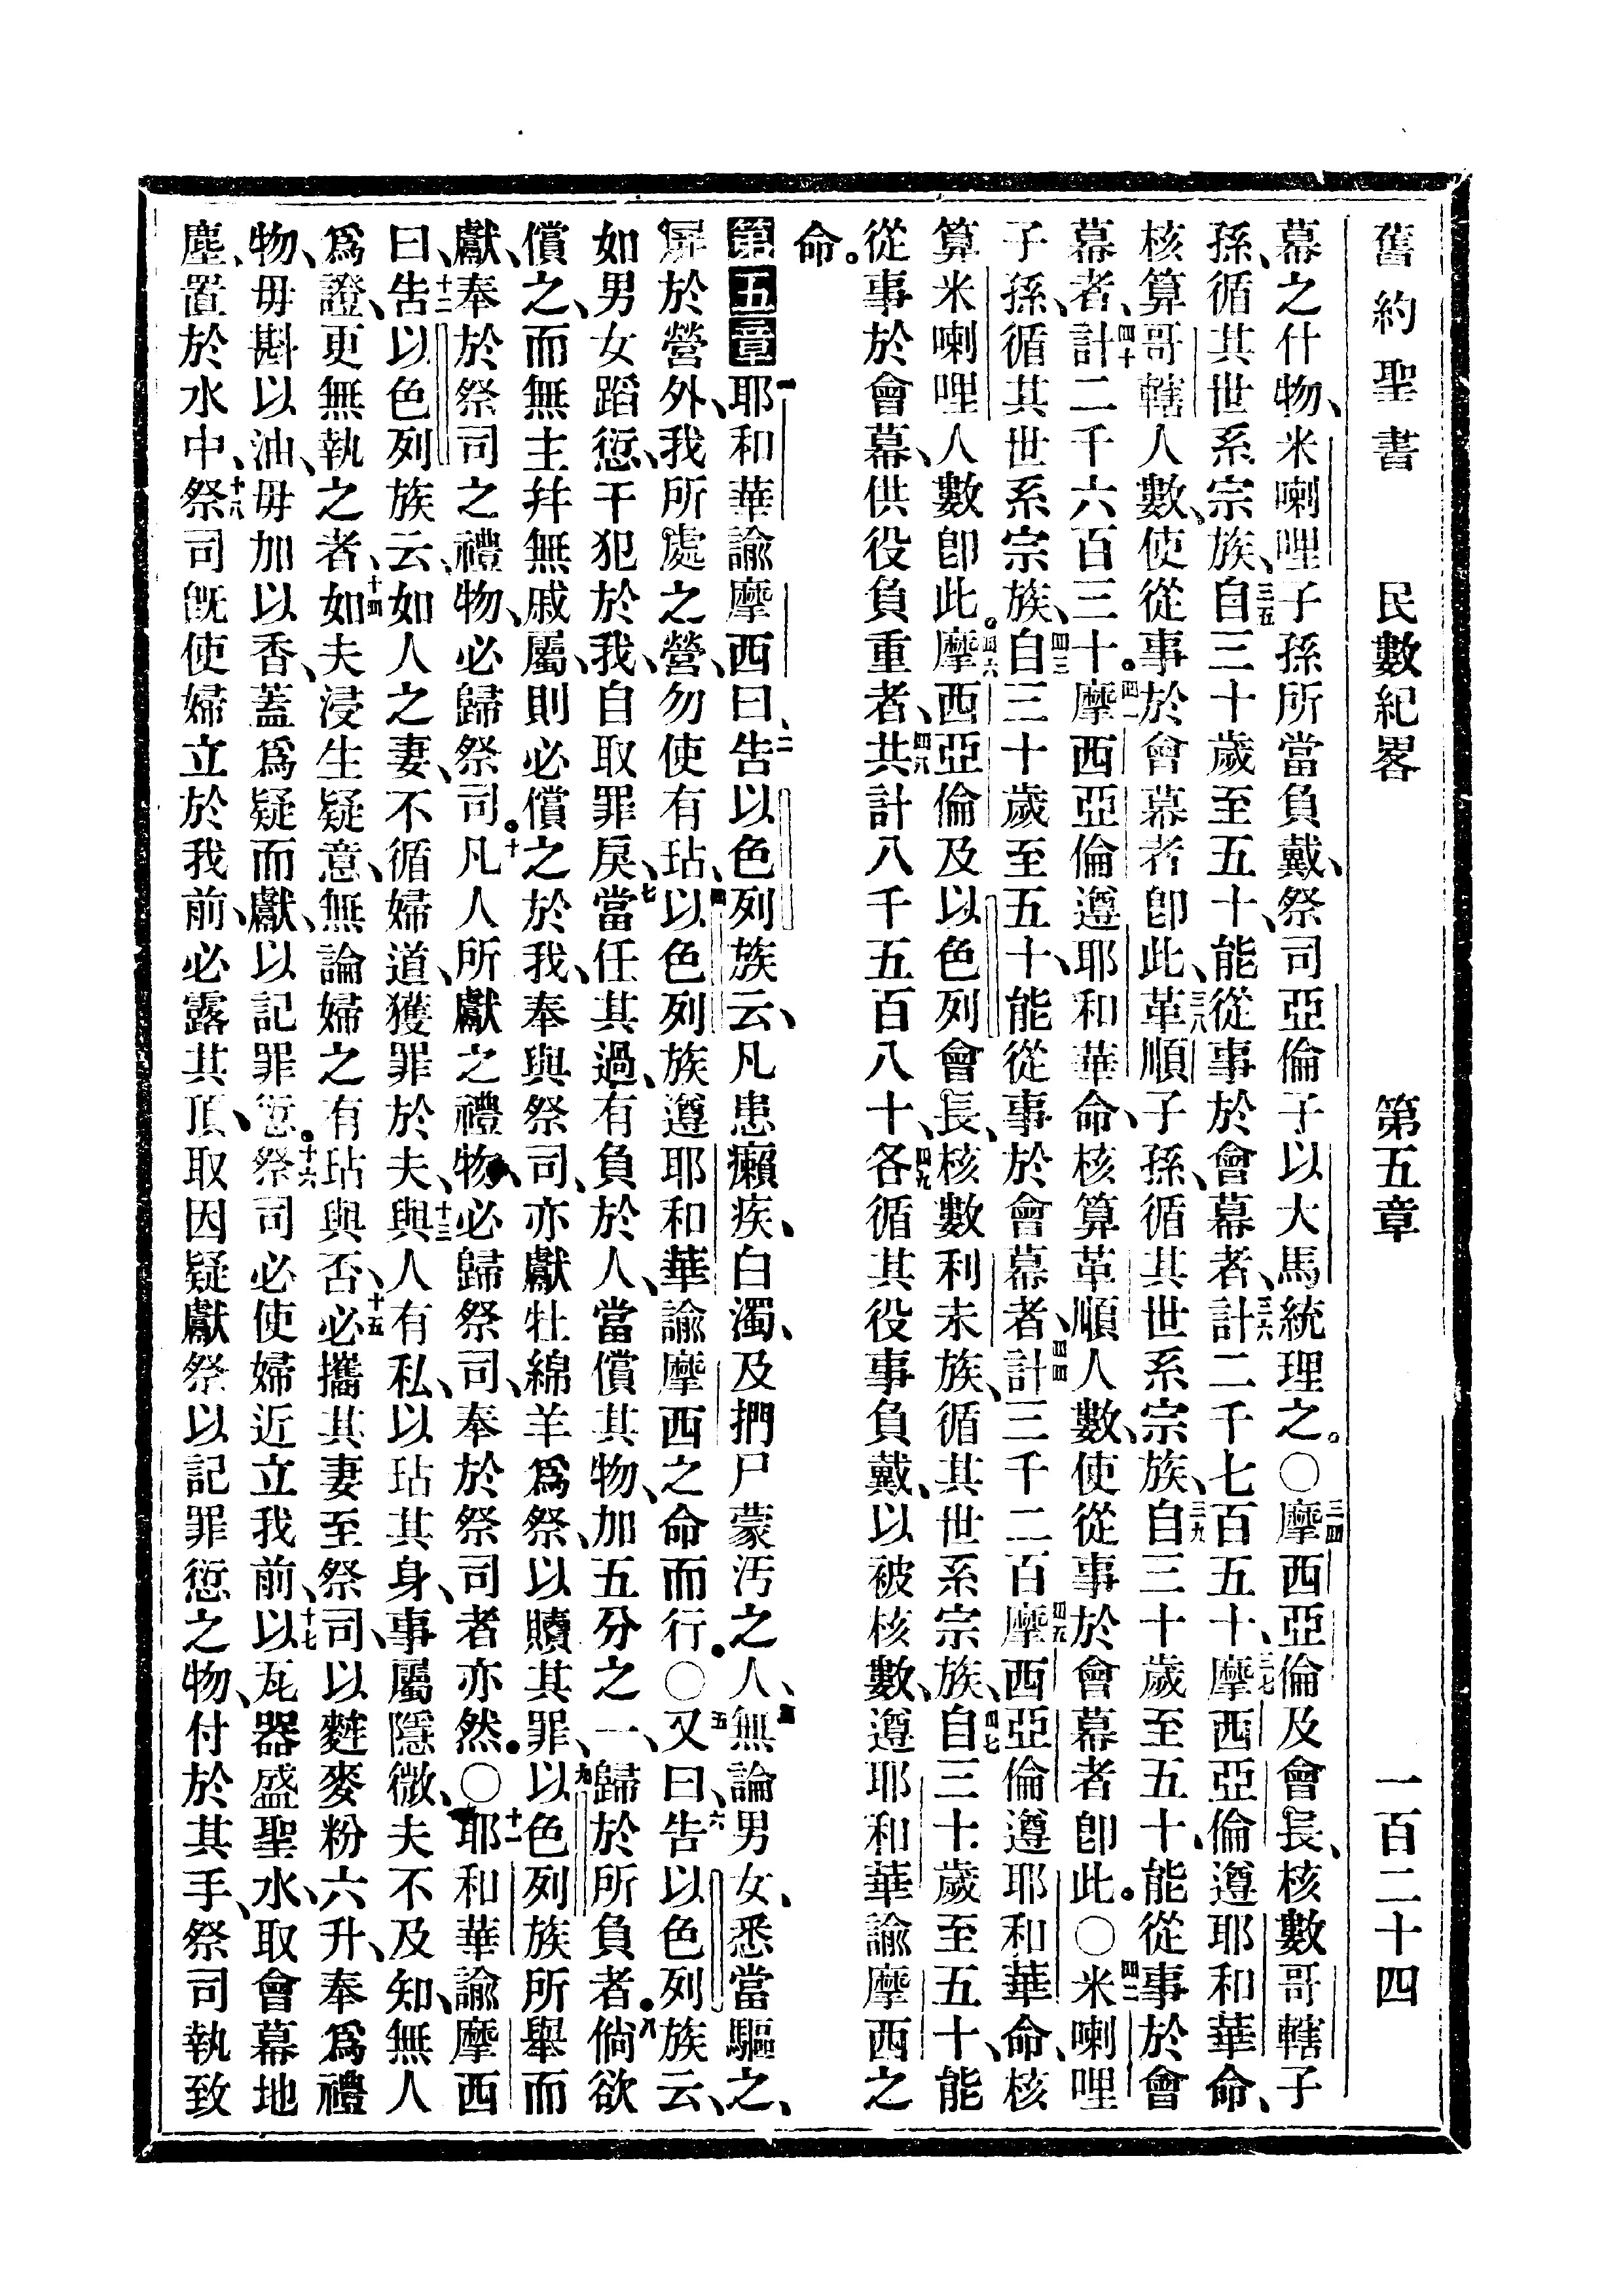 舊約聖書 民數紀畧 第五章 一百二十四
幕之什物、米喇哩子孫所當負戴、祭司亞倫子以大馬統理之。○三四摩西亞倫及會長、核數哥轄子
孫、循其世系宗族、三五自三十歲至五十、能從事於會幕者、三六計二千七百五十、三七摩西亞倫遵耶和華命、
核算哥轄人數、使從事於會幕者卽此、三八革順子孫、循其世系宗族、三九自三十歲至五十、能從事於會
幕者、四十計二千六百三十。四一摩西亞倫遵耶和華命、核算革順人數、使從事於會幕者卽此。○四二米喇哩
子孫、循其世系宗族、四三自三十歲至五十、能從事於會幕者、四四計三千二百、四五摩西亞倫遵耶和華命、核
算米喇哩人數卽此。四六摩西亞倫及以色列會長、核數利未族、循其世系宗族、四七自三十歲至五十、能
從事於會幕、供役負重者、四八共計八千五百八十、四九各循其役事負戴、以被核數、遵耶和華諭摩西之
命。
第五章 一耶和華諭摩西曰、二告以色列族云、凡患癩疾、白濁、及捫尸蒙汚之人、三無論男女、悉當驅之、
屛於營外、我所處之營、勿使有玷、四以色列族遵耶和華諭摩西之命而行。○五又曰、六告以色列族云、
如男女蹈愆、干犯於我、自取罪戾、七當任其過、有負於人、當償其物、加五分之一、歸於所負者。八倘欲
償之、而無主幷無戚屬、則必償之於我、奉與祭司、亦獻牡綿羊爲祭、以贖其罪、九以色列族所舉而
獻、奉於祭司之禮物、必歸祭司。十凡人所獻之禮物、必歸祭司、奉於祭司者亦然。○十一耶和華諭摩西
曰、十二告以色列族云、如人之妻、不循婦道、獲罪於夫、十三與人有私、以玷其身、事屬隱微、夫不及知、無人
爲證、更無執之者、十四如夫浸生疑意、無論婦之有玷與否、十五必攜其妻至祭司、以麰麥粉六升、奉爲禮
物、毋斟以油、毋加以香、蓋爲疑而獻、以記罪愆。十六祭司必使婦近立我前、十七以瓦器盛聖水、取會幕地
塵、置於水中、十八祭司旣使婦立於我前、必露其頂、取因疑獻祭以記罪愆之物、付於其手、祭司執致